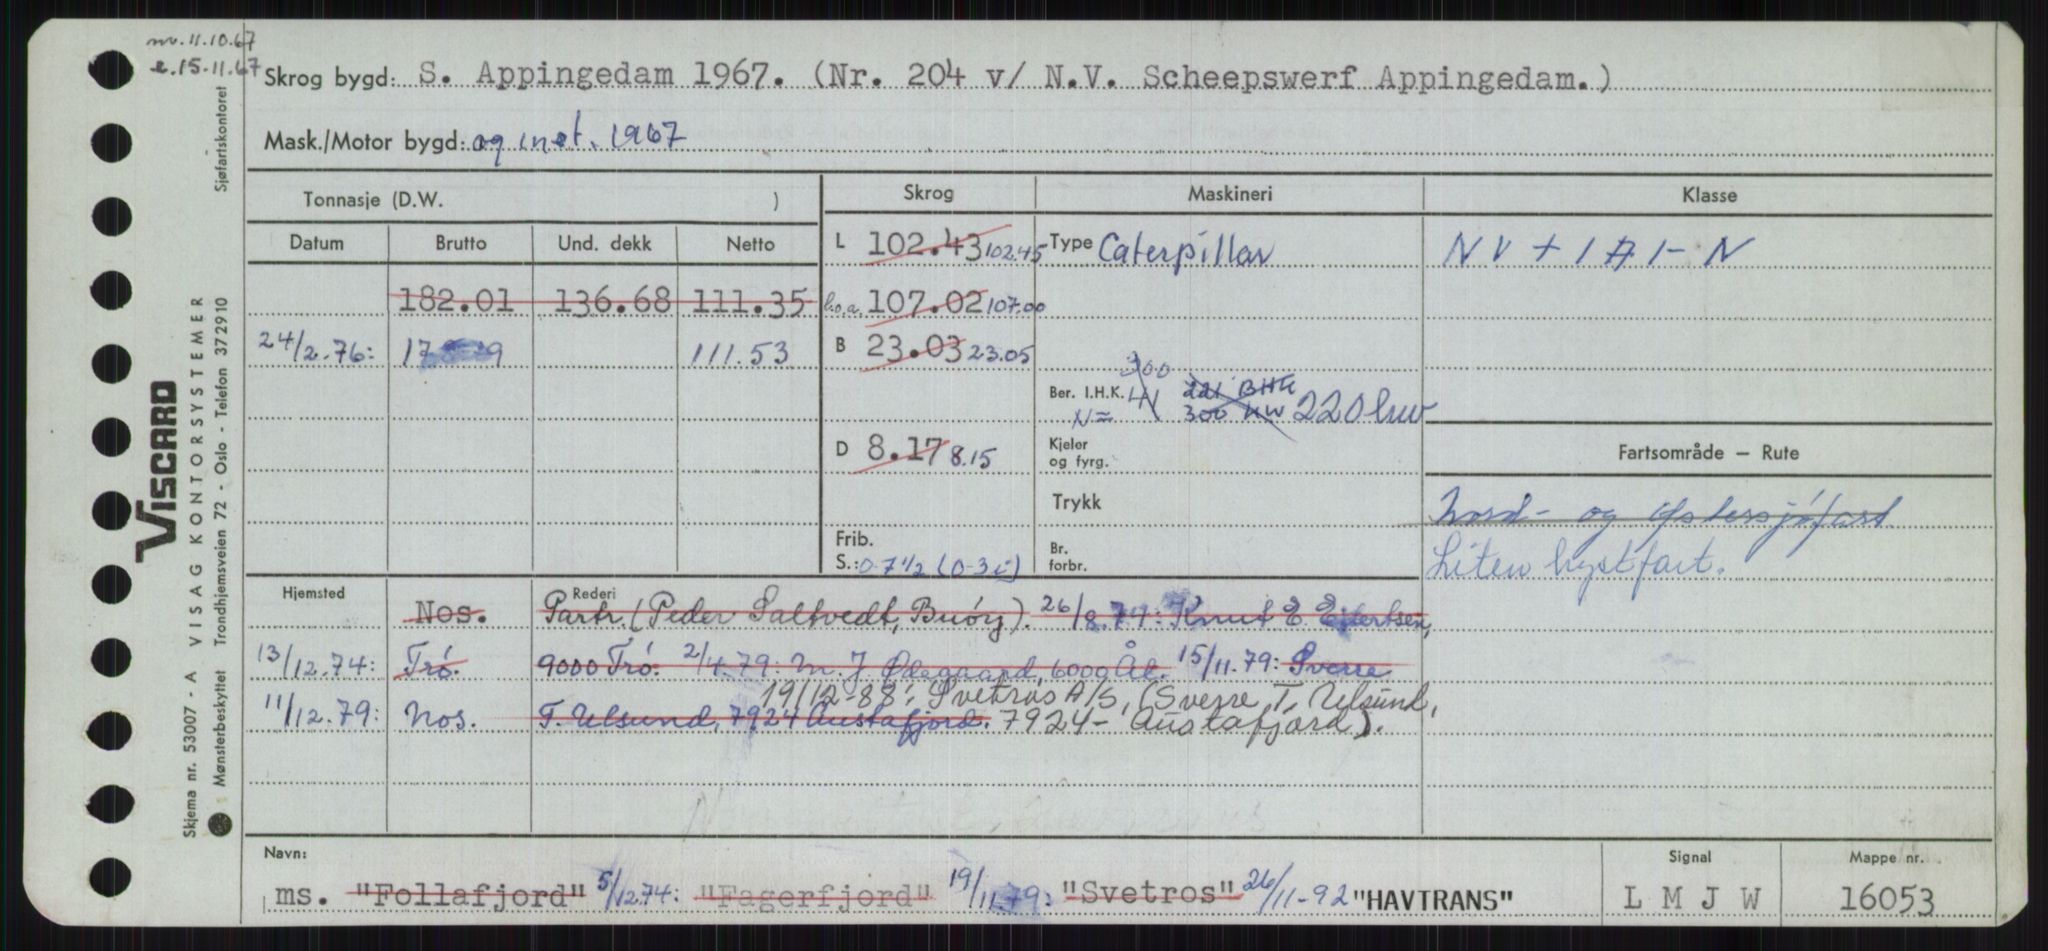 nv. 11.10.67
e. 15-11.67
Skrog bygd: S. Appingedam 1967. (Nr. 204 v/ N.V. Scheepswerf Appingedam.)
Mask./Motor bygd: og inst. 1967
Tonnasje (D.W. )
Skrog
Maskineri
Klasse
Datum
Brutto
Und. dekk
Netto
L 102.43 102.45
Type Caterpillar
182.01
136.68
111.35
l.o.a. 107.02 107.00
24/2.76:
111.53
B 23.03 23.05
900
Ber. I.H.K. 41 221 BHK
N= 300 KW 220 kw
D 8.17 8.15
Kjeler
og fyrg.
Fartsområde — Rute
Trykk
Nord- og Østersjöfart
Frib.
S.: 0-7 1/2 (0-3 i)
Br.
forbr.
Liten kystfart.
Hjemsted
Rederi
Nos. Partr. (Peder Saltvedt, Buöy). 26/8.74: Knut E. Ejlertsen,
13/12.74: Trö. 9000 Trö. 2/4.79: M. J. Ødegaard, 6000 Ål. 15/11.79: Sverre
19/12-88: Svetros A/S, (Sverre T. Ulsund,
11/12.79: Nos. T. Ulsund, 7924 Austafjord. 7924- Austafjord).
Navn:
Signal
Mappe nr.
ms. "Follafjord" 5/12.74: "Fagerfjord" 19/11.79: "Svetros" 26/11-92 "HAVTRANS"
L M J W
16053
VISCARD
Skjema nr. 53007 - A VISAG KONTORSYSTEMER
Mønsterbeskyttet Trondhjemsveien 72 - Oslo - Telefon 372910
Sjøfartskontoret